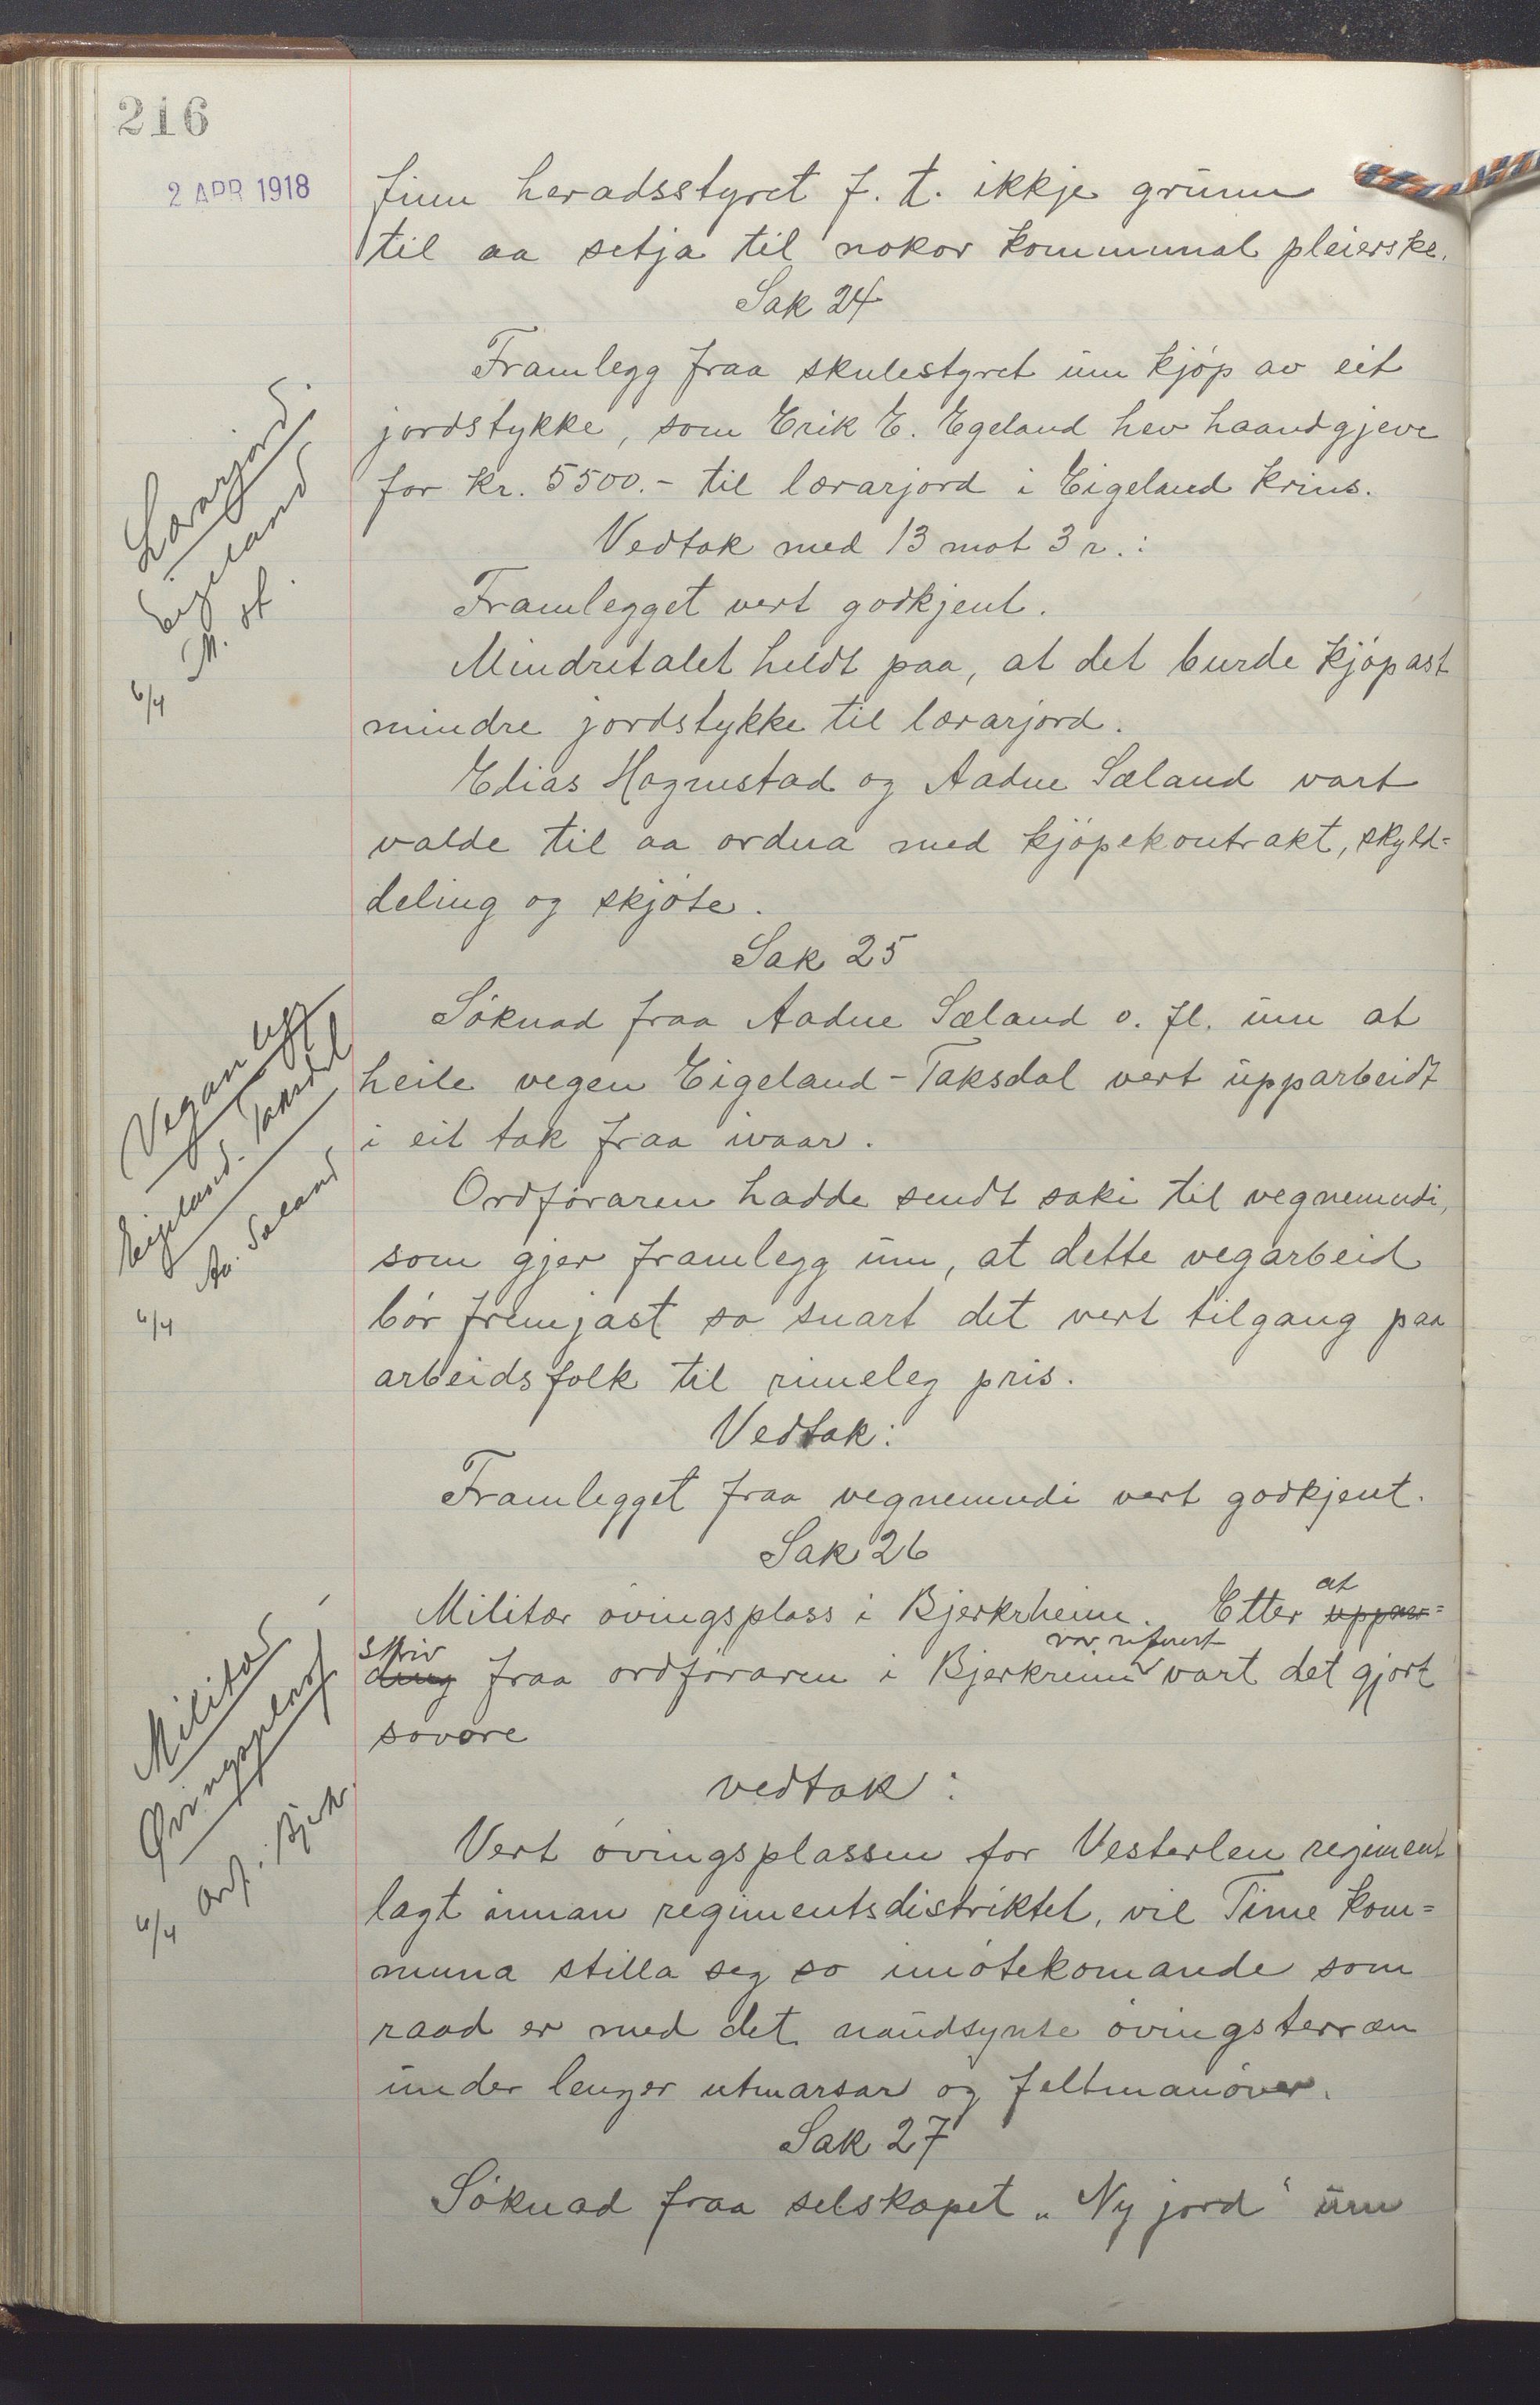 216
2 APR 1918
finn heradsstyret f. t. ikkje grunn
til aa setja til nokor kommunal pleierske.
Sak 24
Framlegg fraa skulestyret um kjøp av eit
jordstykke, som Erik E. Egeland hev haandgjeve
for kr. 5500.- til lærarjord i Eigeland krins.
Vedtak med 13 mot 3 r.:
Framlegget vert godkjent.
Mindretalet heldt paa, at det burde kjøpast
mindre jordstykke til lærarjord.
Elias Hognestad og Aadne Sæland vart
valde til aa ordna med kjøpekontrakt, skyld=
deling og skjøte.
Lærarjord.
Eigeland
6/4
Sak 25
Søknad fraa Aadne Sæland o. fl. um at
heile vegen Eigeland-Taksdal vert upparbeidt
i eit tak fraa ivaar.
Ordføraren hadde sendt saki til vegnemndi,
som gjer framlegg um, at dette vegarbeid
bør fremjast so snart det vert tilgang paa
arbeidsfolk til rimeleg pris.
Vedtak:
Framlegget fraa vegnemndi vert godkjent.
Veganlegg
Eigeland-Taksdal
Aa. Sæland
6/4
Sak 26
Militær øvingsplass i Bjerkrheim. Etter uppmo= at
ding skriv fraa ordføraren i Bjerkreim var referert vart det gjort
sovore
vedtak:
Vert øvingsplassen for Vesterlen regiment
lagt innan regimentsdistriktet, vil Time kom=
muna stilla seg so imøtekomande som
raad er med det naudsynte øvingsterræn
under lenger utmarsar og feltmanøver.
Militær
Øvingsplass
Ordf. i Bjerkr.
6/4
Sak 27
Søknad fraa selskapet „Ny jord" um